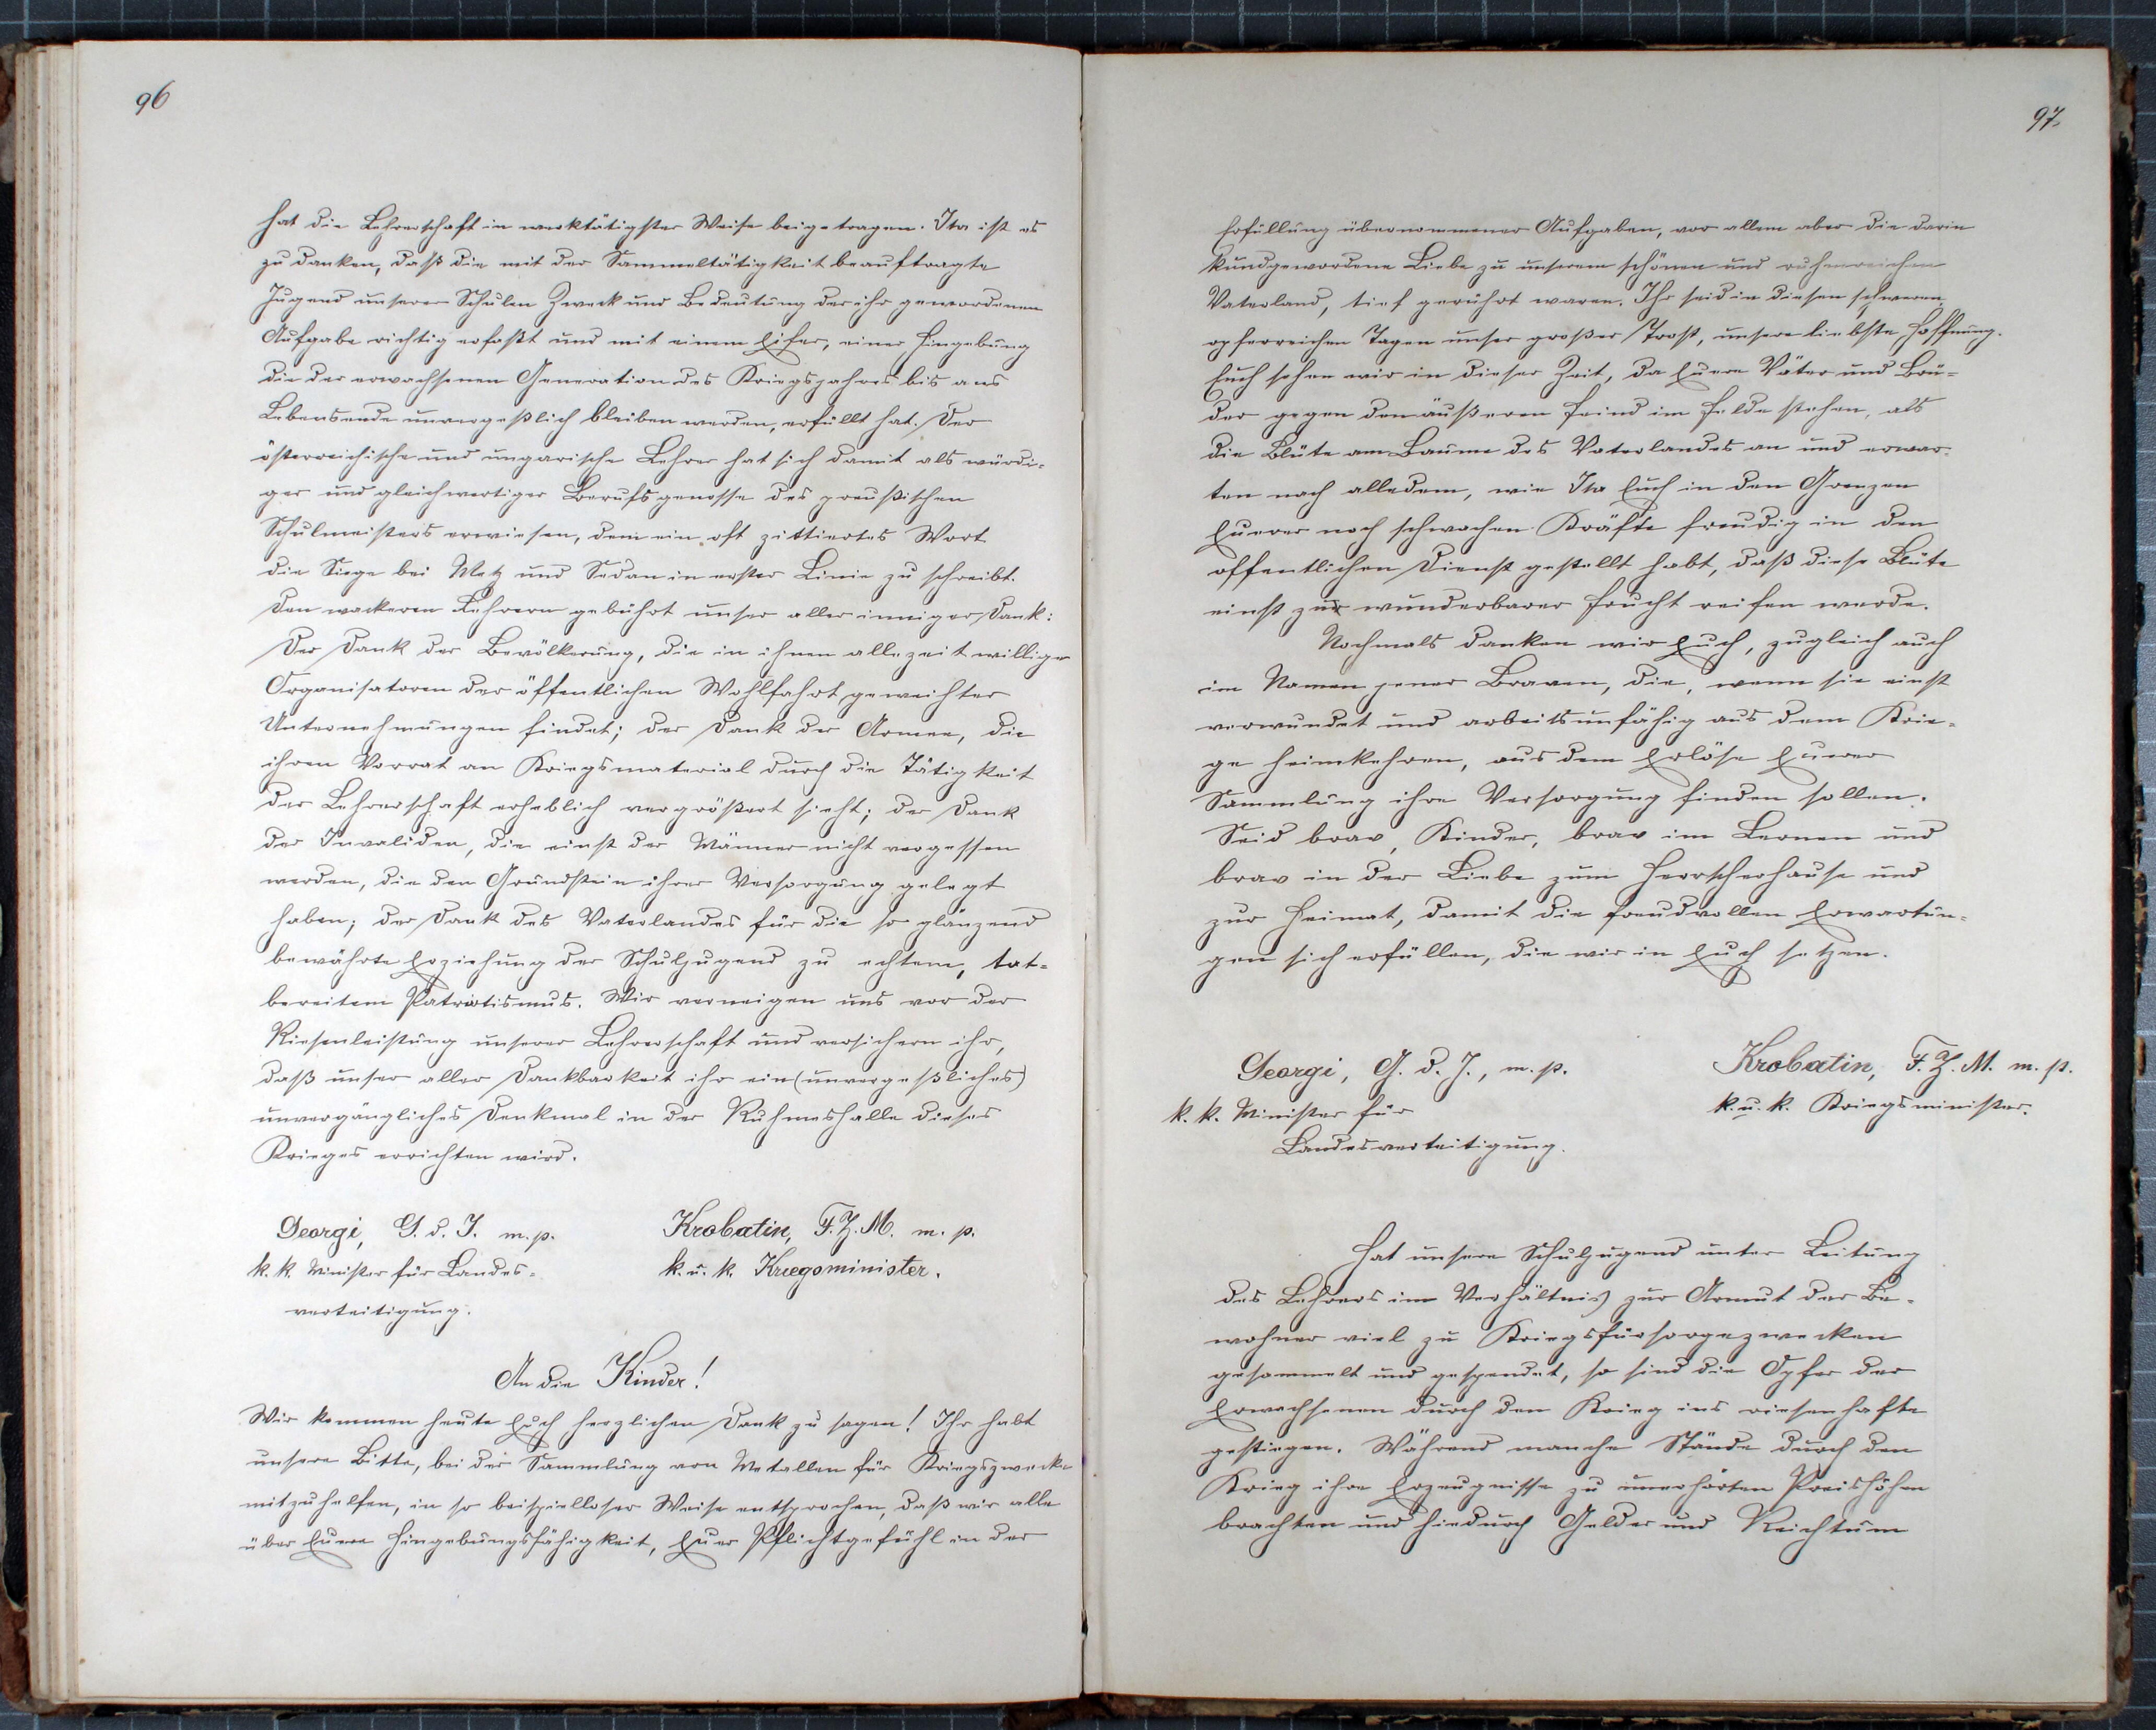 96
hat die Lehrerschaft in werktätigster Weise beigetragen. Ihr ist es
zu danken, daß die mit der Sammeltätigkeit beauftragte
Jugend unserer Schulen Zweck und Bedeutung der ihr gewordenen
Aufgabe richtig erfaßt und mit einem Eifer, einer Hingebung
die der erwachsenen Generation des Kriegsjahres bis ans
Lebensende unvergeßlich bleiben werden, erfüllt hat. Der
österreichische und ungarische Lehrer hat sich damit als würdi-
ger und gleichwertiger Berufsgenosse des preußischen
Schulmeisters erwiesen, dem ein oft zittiertes Wort
die Siege bei Metz und Sedan in erster Linie zu schreibt.
Den wackeren Lehrern gebührt unser aller inniger Dank:
Der Dank der Bevölkerung, die in ihnen allezeit willige
Organisatoren der öffentlichen Wohlfahrt geweihter
Unternehmungen findet; der Dank der Armee, die
ihren Vorrat an Kriegsmaterial durch die Tätigkeit
der Lehrerschaft erheblich vergrößert sieht; der Dank
der Invaliden, die einst der Männer nicht vergessen
werden, die den Grundstein ihrer Versorgung gelegt
haben; der Dank des Vaterlandes für die so glänzend
bewährte Erziehung der Schuljugend zu echtem, tat-
bereitem Patriotismus. Wir verneigen uns vor der
Riesenleistung unserer Lehrerschaft und versichern ihr,
daß unser aller Dankbarkeit ihr ein (unvergeßliches)
unvergängliches Denkmal in der Ruhmeshalle dieses
Krieges errichten wird.
Georgi, G. d. I. m. p. Krobatin, F. Z. M. m. p.
k. k. Minister für Landes- k. u. k. Kriegsminister.
verteitigung.
An die Kinder!
Wir kommen heute Euch herzlichen Dank zu sagen! Ihr habt
unsere Bitte, bei der Sammlung von Metallen für Kriegszwecke
mitzuhelfen, in so beispielloser Weise entsprochen, daß wir alle
über Euere Hingebungsfähigkeit, Euer Pflichtgefühl in der
97.
Erfüllung übernommener Aufgaben, vor allem aber die darin
kundgewordene Liebe zu unserem schönen und ruhmreichen
Vaterland, tief gerührt waren. Ihr seid in diesen schweren,
opferreichen Tagen unser großer Trost, unsere liebste Hoffnung.
Euch sehen wir in dieser Zeit, da Euere Väter und Brü-
der gegen den äußeren Feind im Felde stehen, als
die Blüte am Baume des Vaterlandes an und erwar-
ten nach alledem, wie Ihr Euch in den Grenzen
Euerer noch schwachen Kräfte freudig in den
öffentlichen Dienst gestellt habt, daß diese Blüte
einst zur wunderbarer Frucht reifen werde.
Nochmals danken wir Euch, zugleich auch
im Namen jener Braven, die, wenn sie einst
verwundet und arbeitsunfähig aus dem Krie-
ge heimkehren, aus dem Erlöse Euerer
Sammlung ihre Versorgung finden sollen.
Seid brav, Kinder, brav im Lernen und
brav in der Liebe zum Herrscherhause und
zur Heimat, damit die freudvollen Erwartun-
gen sich erfüllen, die wir in Euch setzen.
Georgi, G. d. I., m. p. Krobatin, F. Z. M. m. p.
k. k. Minister für k. u. k. Kriegsminister.
Landesverteitigung.
Hat unsere Schuljugend unter Leitung
des Lehrers im Verhältnis zur Armut der Be-
wohner viel zu Kriegsfürsorgezwecken
gesammelt und gespendet, so sind die Opfer der
Erwachsenen durch den Krieg ins riesenhafte
gestiegen. Während manche Stände durch den
Krieg ihre Erzeugnisse zu unerhörten Preishöhen
brachten und hiedurch Gelder und Reichtum